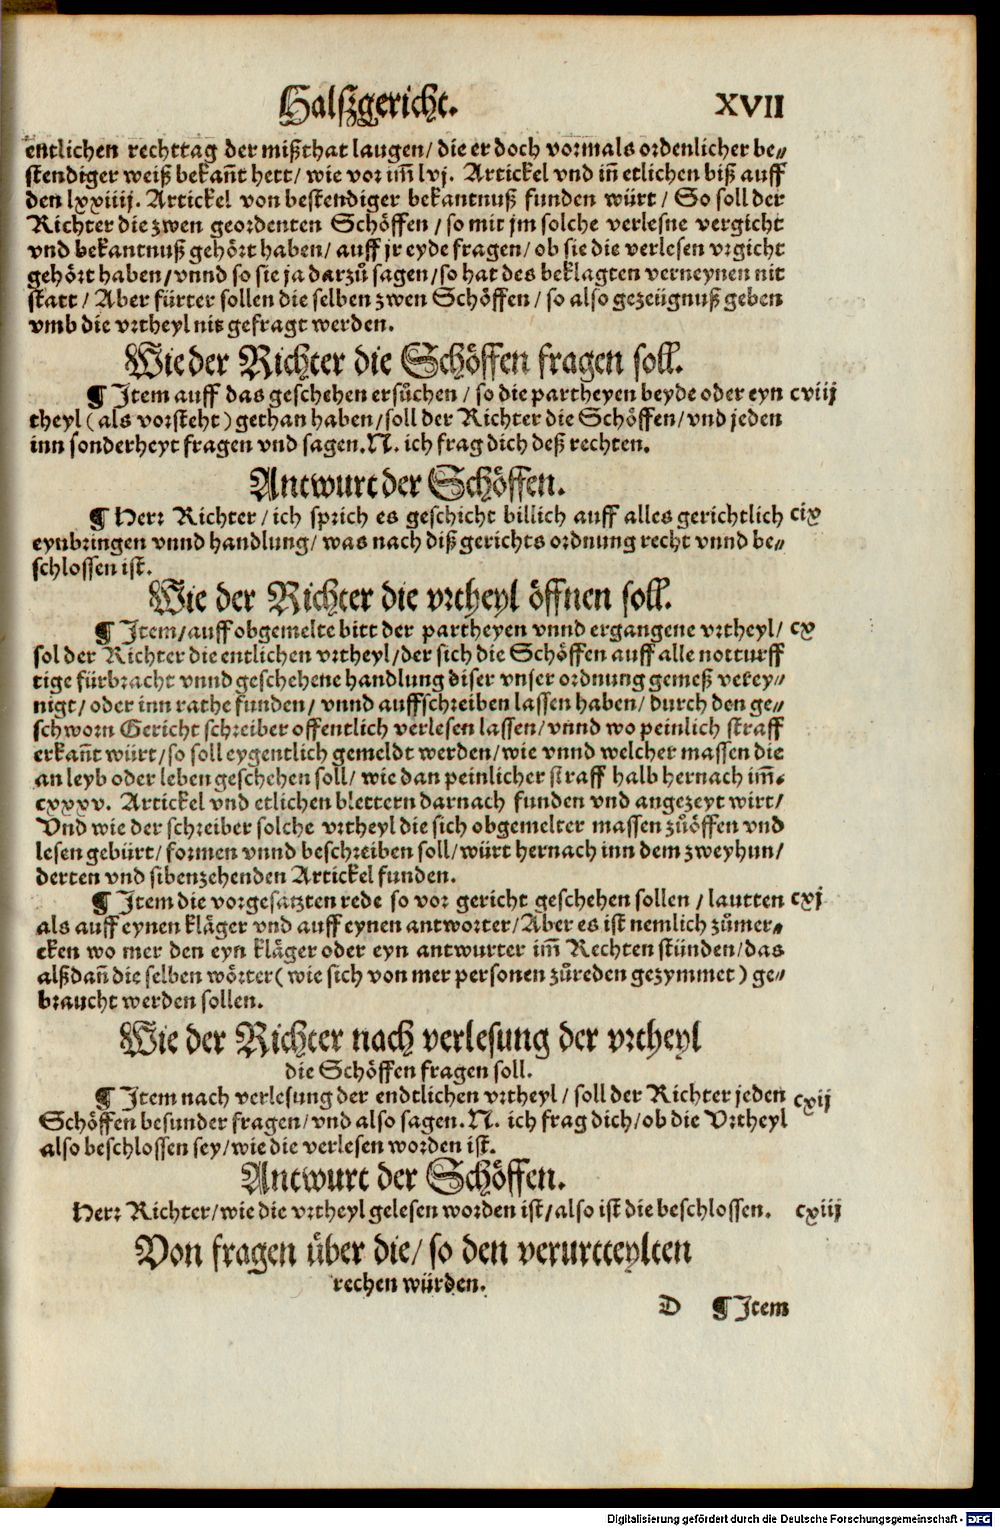 Halßgericht. XVII
entlichen rechttag der mißthat laugen/ die er doch vormals ordenlicher be⸗
stendiger weiß bekañt hett/ wie vor im̃ lvj. Artickel vnd iñ etlichen biß auff
den lxxiiij. Artickel von bestendiger bekantnuß funden würt/ So soll der
Richter die zwen geordenten Schöffen/ so mit jm solche verlesne vergicht
vnd bekantnuß gehört haben/ auff jr eyde fragen/ ob sie die verlesen vrgicht
gehört haben/ vnnd so sie ja darzů sagen/ so hat des beklagten verneynen nit
statt/ Aber fürter sollen die selben zwen Schöffen/ so also gezeügnuß geben
vmb die vrtheyl nit gefragt werden.
Wie der Richter die Schöffen fragen soll.
¶ Item auff das geschehen ersůchen/ so die partheyen beyde oder eyn cviij
theyl (als vorsteht) gethan haben/ soll der Richter die Schöffen/ vnd jeden
inn sonderheyt fragen vnd sagen. N. ich frag dich deß rechten.
Antwurt der Schöffen.
¶ Herr Richter/ ich sprich es geschicht billich auff alles gerichtlich cix
eynbringen vnnd handlung/ was nach diß gerichts ordnung recht vnnd be⸗
schlossen ist.
Wie der Richter die vrtheyl öffnen soll.
¶ Item/ auff obgemelte bitt der partheyen vnnd ergangene vrtheyl/ cx
sol der Richter die entlichen vrtheyl/ der sich die Schöffen auff alle notturff
tige fürbracht vnnd geschehene handlung diser vnser ordnung gemeß verey⸗
nigt/ oder inn rathe funden/ vnnd auffschreiben lassen haben/ durch den ge⸗
schworn Gericht schreiber offentlich verlesen lassen/ vnnd wo peinlich straff
erkañt würt/ so soll eygentlich gemeldt werden/ wie vnnd welcher massen die
an leyb oder leben geschehen soll/ wie dan peinlicher straff halb hernach im̃.
cxxxv. Artickel vnd etlichen blettern darnach funden vnd angezeyt wirt/
Vnd wie der schreiber solche vrtheyl die sich obgemelter massen zůöffen vnd
lesen gebürt/ formen vnnd beschreiben soll/ würt hernach inn dem zweyhun/
derten vnd sibenzehenden Artickel funden.
¶ Item die vorgesatzten rede so vor gericht geschehen sollen/ lautten cxj
als auff eynen kläger vnd auff eynen antworter/ Aber es ist nemlich zůmer⸗
cken wo mer den eyn kläger oder eyn antwurter im̃ Rechten stünden/ das
alßdañ die selben wörter (wie sich von mer personen zůreden gezymmet) ge⸗
braucht werden sollen.
Wie der Richter nach verlesung der vrtheyl
die Schöffen fragen soll.
¶ Item nach verlesung der endtlichen vrtheyl/ soll der Richter jeden cxij
Schöffen besunder fragen/ vnd also sagen. N. ich frag dich/ ob die Vrtheyl
also beschlossen sey/ wie die verlesen worden ist.
Antwurt der Schöffen.
Herr Richter/ wie die vrtheyl gelesen worden ist/ also ist die beschlossen. cxiij
Von fragen über die/ so den verurtteylten
rechen würden.
D ¶ Item
Digitalisierung gefördert durch die Deutsche Forschungsgemeinschaft - DFG